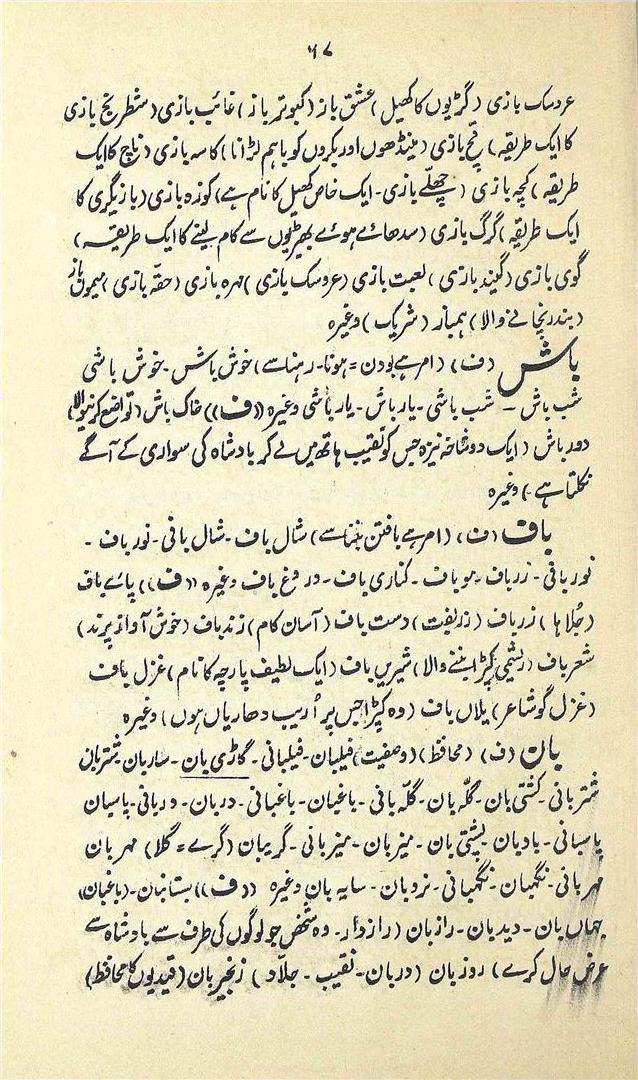 ۶۷
عروسک بازی (گڑیوں کا کھیل) عشق باز (کبوتر باز) غائب بازی (شطرنج بازی
کا ایک طریقہ) قچ بازی (مینڈھوں اور بکروں کو باہم لڑانا) کاسہ بازی (ناچ کا ایک
طریقہ) کچہ بازی (چھلّے بازی۔ ایک خاص کھیل کا نام ہے) کوزہ بازی (بازیگری کا
ایک طریقہ) گرگ بازی (سدھائے ہوئے بھیڑیوں سے کام لینے کا ایک طریقہ)
گوی بازی (گیند بازی) لعبت بازی (عروسک بازی) مہرہ بازی (حقہ بازی) میمون باز
(بندر نچانے والا) ہمباز (شریک) وغیرہ
باش (ف) (امر ہے بودن = ہونا۔ رہنا سے) خوش باش۔ خوش باشی
شب باش ۔ شب باشی۔ یار باش۔ یار باشی وغیرہ ((ف)) خاک باش (تواضع کرنیوالا)
دور باش (ایک دو شاخہ نیزہ جس کو نقیب ہاتھ میں لے کر بادشاہ کی سواری کے آگے
نکلتا ہے۔) وغیرہ
باف (ف) (امر ہے بافتن بننا سے) شال باف۔ شال بافی۔ نور باف ۔
نور بافی۔ زرباف۔ موباف ۔ کناری باف۔ دروغ باف وغیرہ ((ف)) پائے باف
(جُلاہا) زرباف (زربفت) دست باف (آسان کام) زندباف (خوش آواز پرند)
شعرباف (ریشمی کپڑا بننے والا) شیریں باف (ایک لطیف پارچہ کا نام) غزل باف
(غزل گو شاعر) یلاں باف (وہ کپڑا جس پر اُریب دھاریاں ہوں) وغیرہ
بان (ف) (محافظ) (وصفیت) فیلبان۔ فیلبانی۔ گاڑی بان۔ ساربان شتربان
شتربانی۔ کشتی بان۔ گلّہ بان۔ گلّہ بانی۔ باغبان۔ باغبانی۔ دربان۔ دربانی۔ پاسبان
پاسبانی۔ بادبان۔ پشتی بان۔ میزبان۔ میزبانی۔ گریبان (گرے = گلا) مہربان
مہربانی۔ نگہبان۔ نگہبانی۔ نردبان۔ سایہ بان وغیرہ ((ف)) بستانبان۔ (باغبان)
جہاں بان۔ دیدبان۔ رازبان (رازدار۔ وہ شخص جو لوگوں کی طرف سے بادشاہ سے
عرض حال کرے) روزبان (دربان۔ نقیب ۔ جلّاد) زنجیربان (قیدیوں کا محافظ)